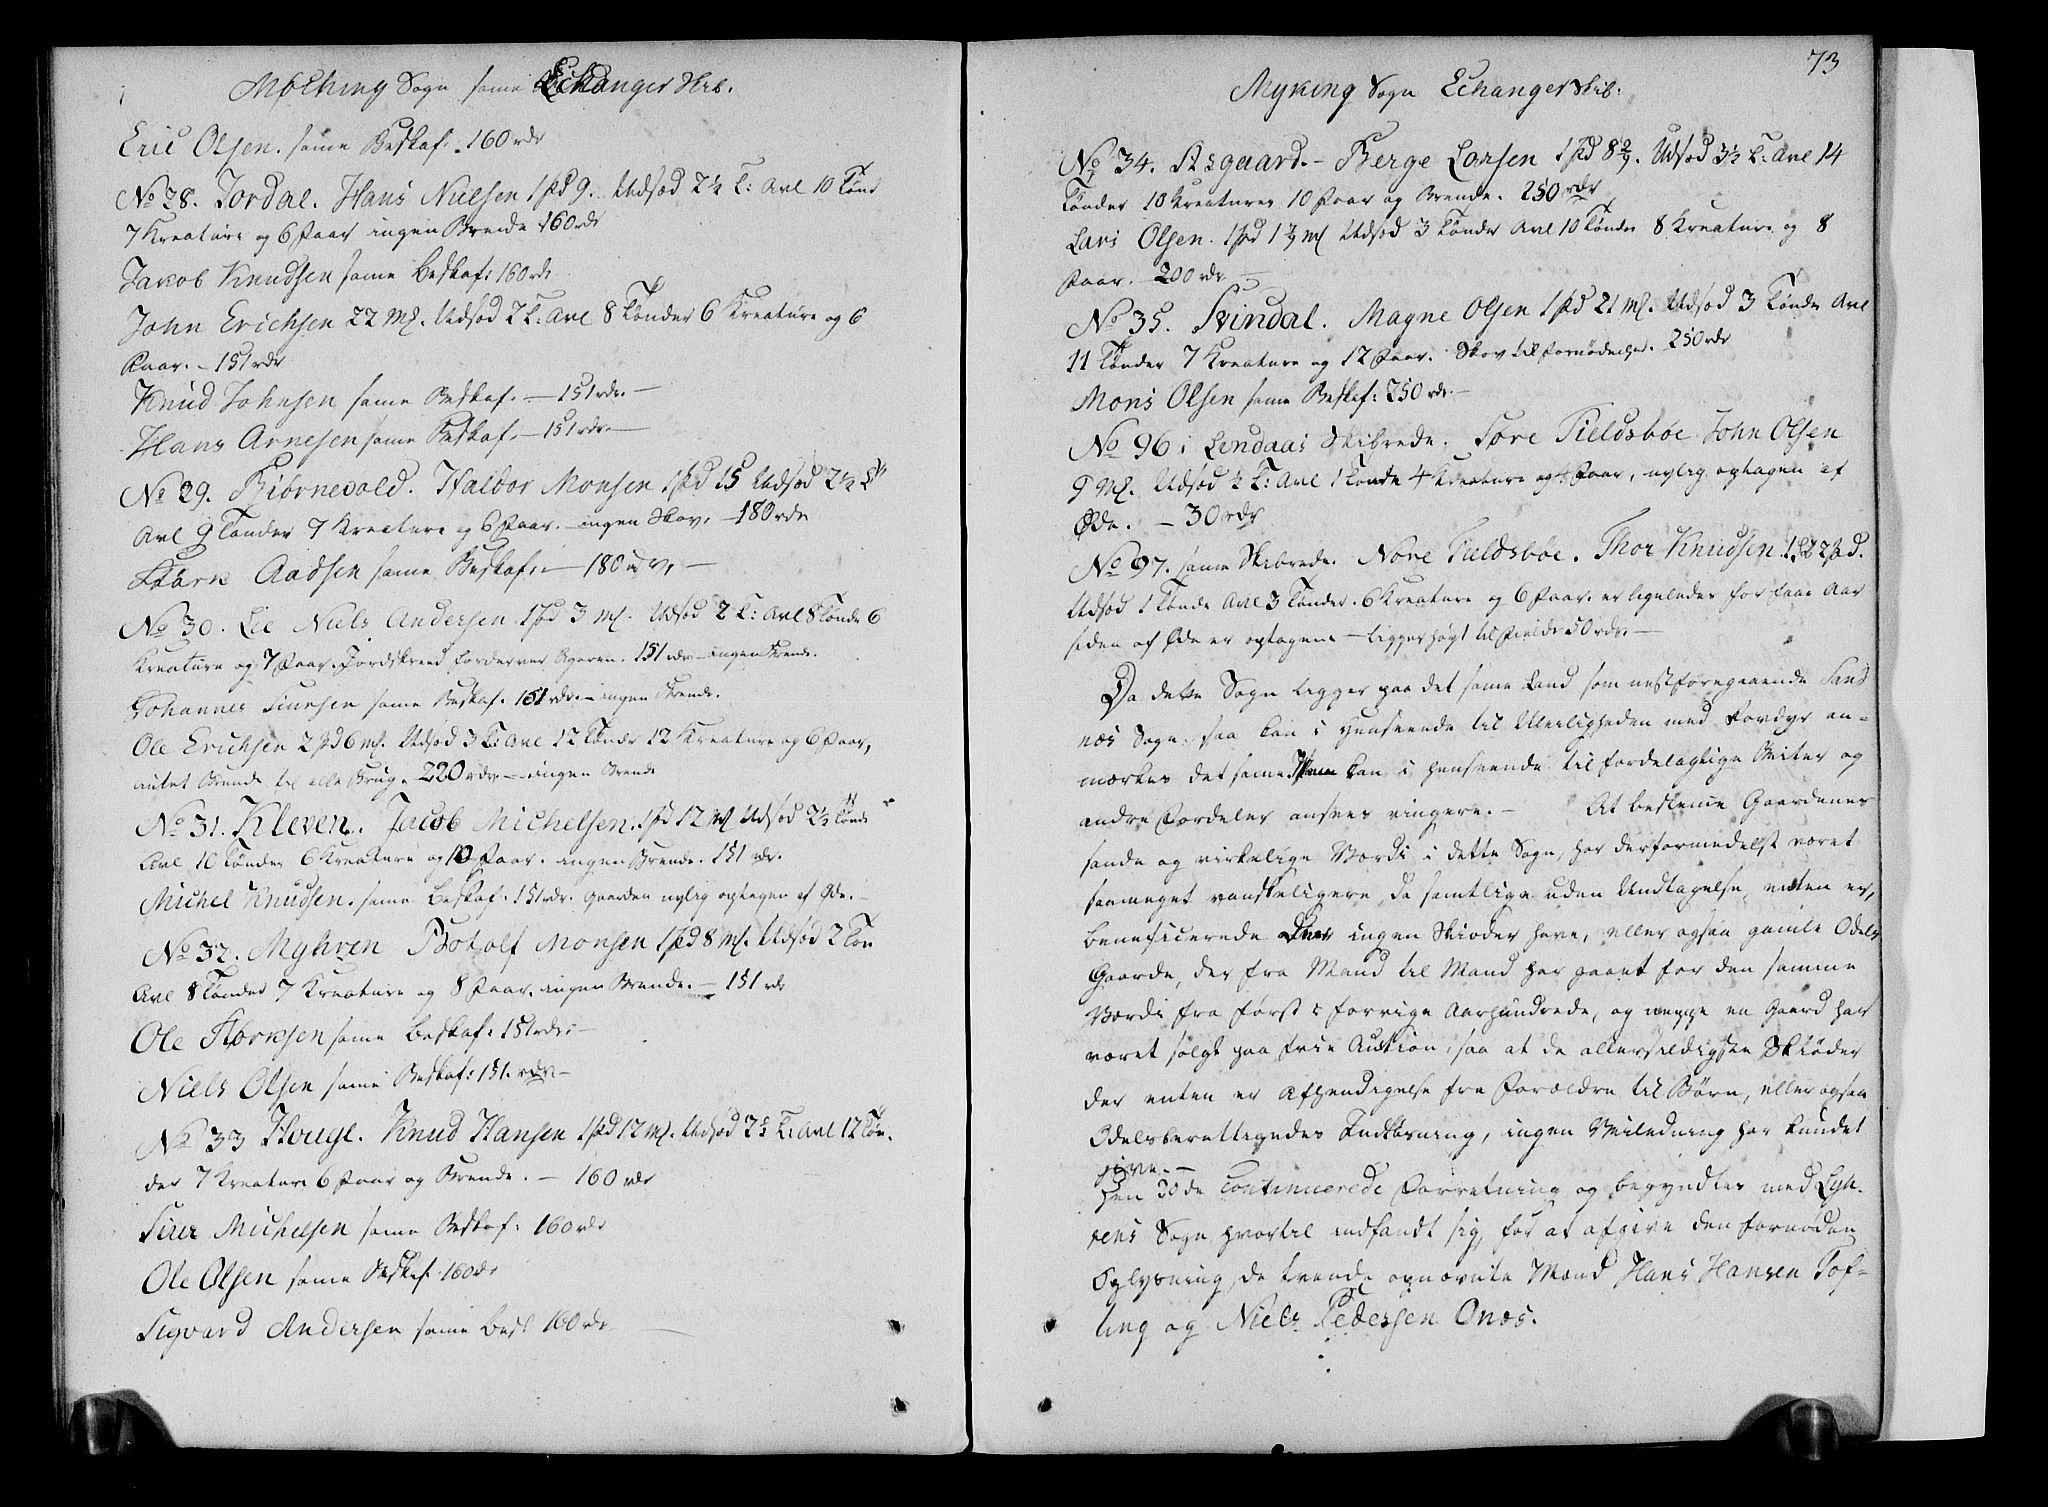 Møching Sogn same Echanger Skb.
Eric Olsen. same Beskaf. 160 rdr
No 28. Jordal. Hans Nielsen 1 pd 9. Udsød 2 1/4 T: Avl 10 Tønd
7 Kreature og 6 Faar ingen Brende 160 rdr
Jacob Knudsen same Beskaf: 160 rdr
John Erichsen 22 mL. Udsød 2 T. Avl 8 Tønder 6 Kreature og 6
Faar. - 151 rdr
Knud Johnsen same Beskaf. — 151 rdr. —
Hans Arnesen same Beskaf. — 151 rdr. —
No 29. Biørnevold. Haldor Monsen 1 pd 15 Udsød 2 1/2 T
Avl 9 Tønder 7 Kreature og 6 Faar. - ingen Skov. - 180 rdr
Aadsen same Beskaf. — 180 rdr. —
No 30. Lie Niels Andersen 1 pd 3 mL. Udsød 2 T: Avl 8 Tønde 6
Kreature og 7 Faar. Jordskreed forderver Ageren. 151 rdr - ingen Brende.
Johannes Siursen same Beskaf. 151 rdr. - ingen Brende.
Ole Erichsen 2 pd 6 mL. Udsød 3 T: Avl 12 Tønder 12 Kreature og 6 Faar,
intet Brende til alle Brug. 220 rdr - ingen Brende
No 31. Kleven. Jacob Michelsen. 1 pd 12 mL Udsød 2 1/2 Tønde
Avl 10 Tønder 6 Kreature og 10 Faar. ingen Brende. 151 rdr.
Michel Knudsen. same Beskaf. 151 rdr. Gaarden nylig optagen af Øde. -
No 32. Myhren Botolf Monsen 1 pd 8 mL. Udsød 2 Tøn
Avl 8 Tønder 7 Kreature og 8 Faar. ingen Brende. — 151 rdr
Ole Størksen same Beskaf: 151 rdr. —
Niels Olsen same Beskaf: 151. rdr. —
No 33 Houge. Knud Hansen 1 pd 12 mL. Udsød 2 1/2 T: Avl 12 Tøn-
der 7 Kreature 6 Faar og Brende. — 160 rdr
Siur Michelsen same Beskaf: 160 rdr
Ole Olsen same Beskaf. 160 rdr
Sigvard Andersen same Besk 160 rdr —
73
Myking Sogn Echanger Skib:
No 34. Risgaard. - Berge Larsen 1 pd 8 2/7. Udsød 3 1/2 T: Avl 14
Tønder 10 Kreaturer 10 Faar og Brende. 250 rdr
Lars Olsen. 1 pd 1 2/7 mL Udsød 3 Tønder Avl 10 Tønder 8 Kreature og 8
Faar. - 200 rdr —
No 35. Svindal. Magne Olsen 1 pd 21 mL. Udsød 3 Tønder Avl
11 Tønder 7 Kreature og 12 Faar. Skov til fornødenhed. 250 rdr
Mons Olsen same Beskaf: 250 rdr. —
No 96 i Lendaas Skibrede. Søre Fieldsbøe John Olsen
9 mL. Udsød 1/2 T: Avl 1 Tønde 4 Kreature og 4 Faar, nylig optagen af
Øde. — 30 rdr
No 97. same Skibrede. Nore Fieldsbøe. Thor Knudsen.
Udsød 1 Tønde Avl 3 Tønder. 6 Kreature og 6 Faar. er ligeledes for faae Aar
siden af Øde er optagen - ligger høgt til Fields 50 rdr. —
Da dette Sogn ligger paa det same Land som nestforegaaende Sand
næs Sogn, saa kan i Henseende til Uleiligheden med Rovdyr an-
mærkes det same kan i henseende til fordelagtige Beiter og
andre Fordeler ansees ringere. — At bestemme Gaardenes
sande og virkelige Værdi i dette Sogn, har derformedelst været
saameget vanskeligere, da samtlige uden Undtagelse, enten er,
beneficerede der ingen Skiøder have, eller ogsaa gamle Odels
Gaarde, der fra Mand til Mand har gaaet for den samme
Værdi fra først i forrige Aarhundrede, og neppe en Gaard har
været solgt paa frie Auction, saa at de allersildigste Skiøder
der enten er Afhendigelse fra Forældre til Børn, eller ogsaa
Odelsberettigedes Indløsning, ingen Veiledning har kundet
give. —
Den 30de continuerede Forretning og begyndtes med Lyh-
rens Sogn hvortil indfandt sig, for at afgive den fornødne
Oplysning de tvende opnævnte Mænd Hans Hansen Tof-
ting og Niels Pedersen Onæs.